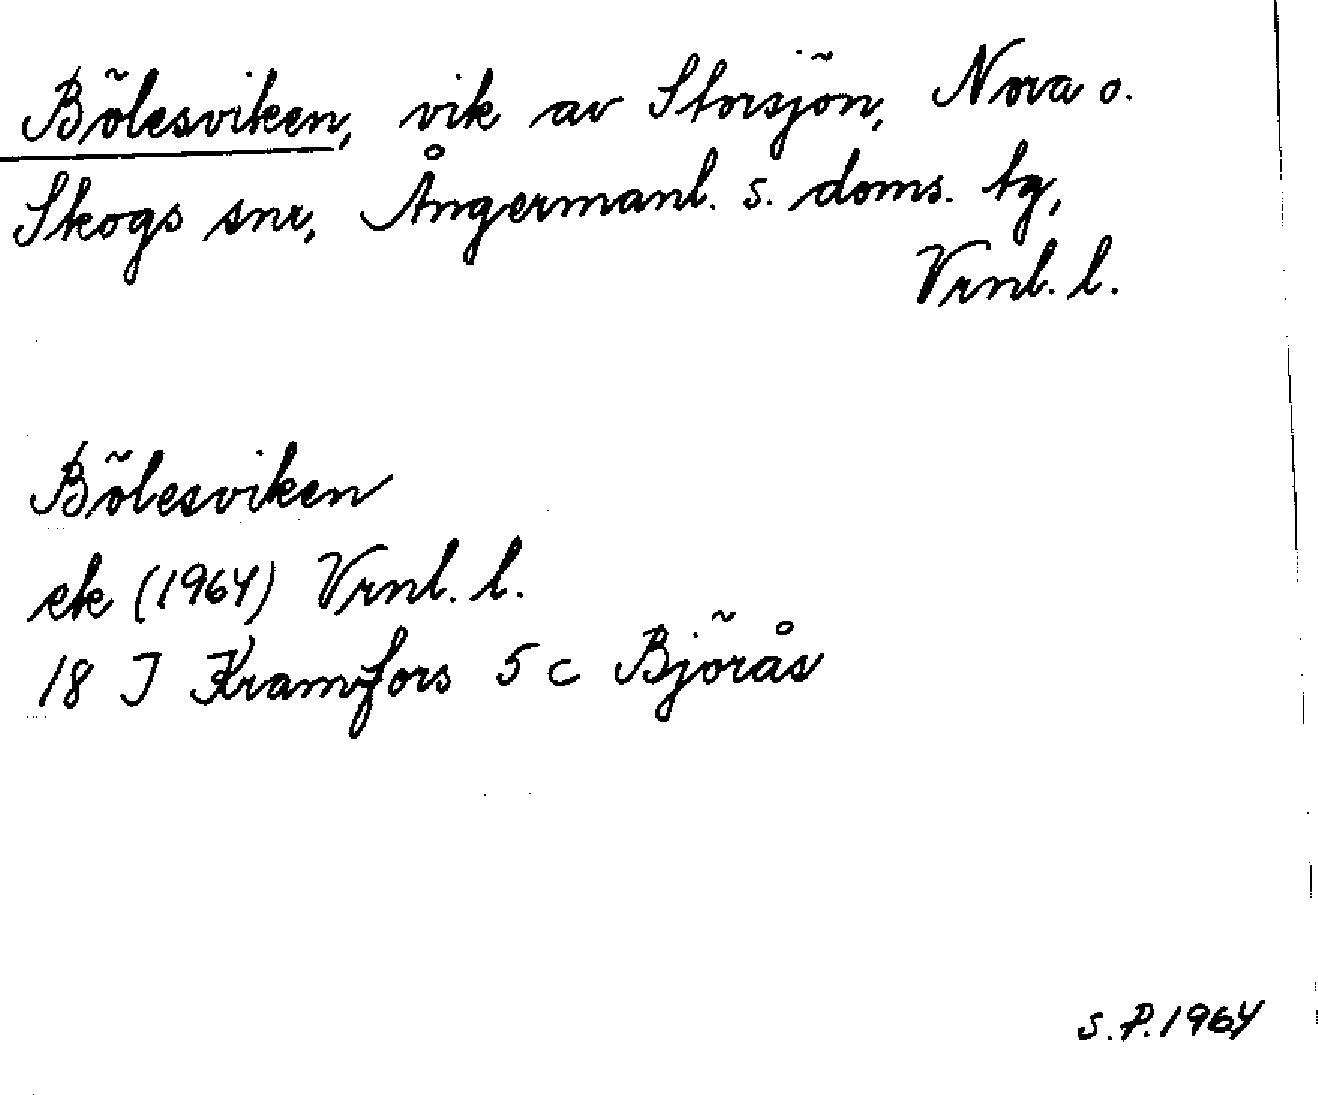 Bölesviken, vik av Storsjön, Nora o.
Skogs snr, Ångermanl. s. doms. tg,
Vrnl. l.
Bölesviken
ek (1964) Vrnl. l.
18 J Kramfors 5 c Björås
S.P. 1964